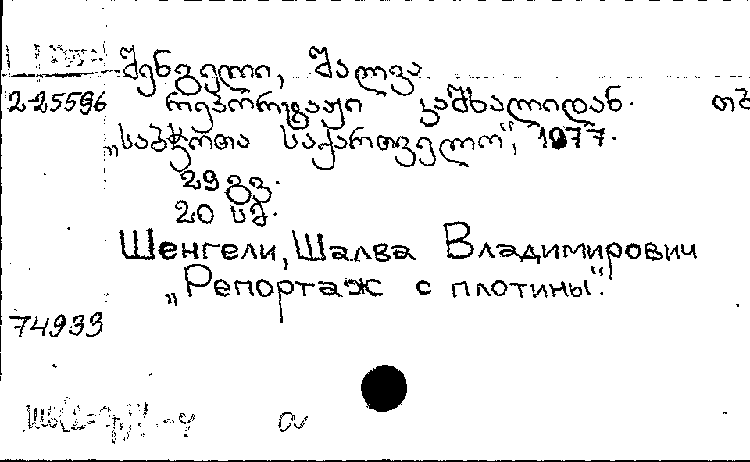 შენგელი, შალვა
2-25596 რეპორტაჟი კაშხალიდან. თბ
„საბჭოთა საქართველო“, 1977.
29 გვ.
20 სმ.
Шенгели, Шалва Владимирович
„Репортаж с плотины“.
74933